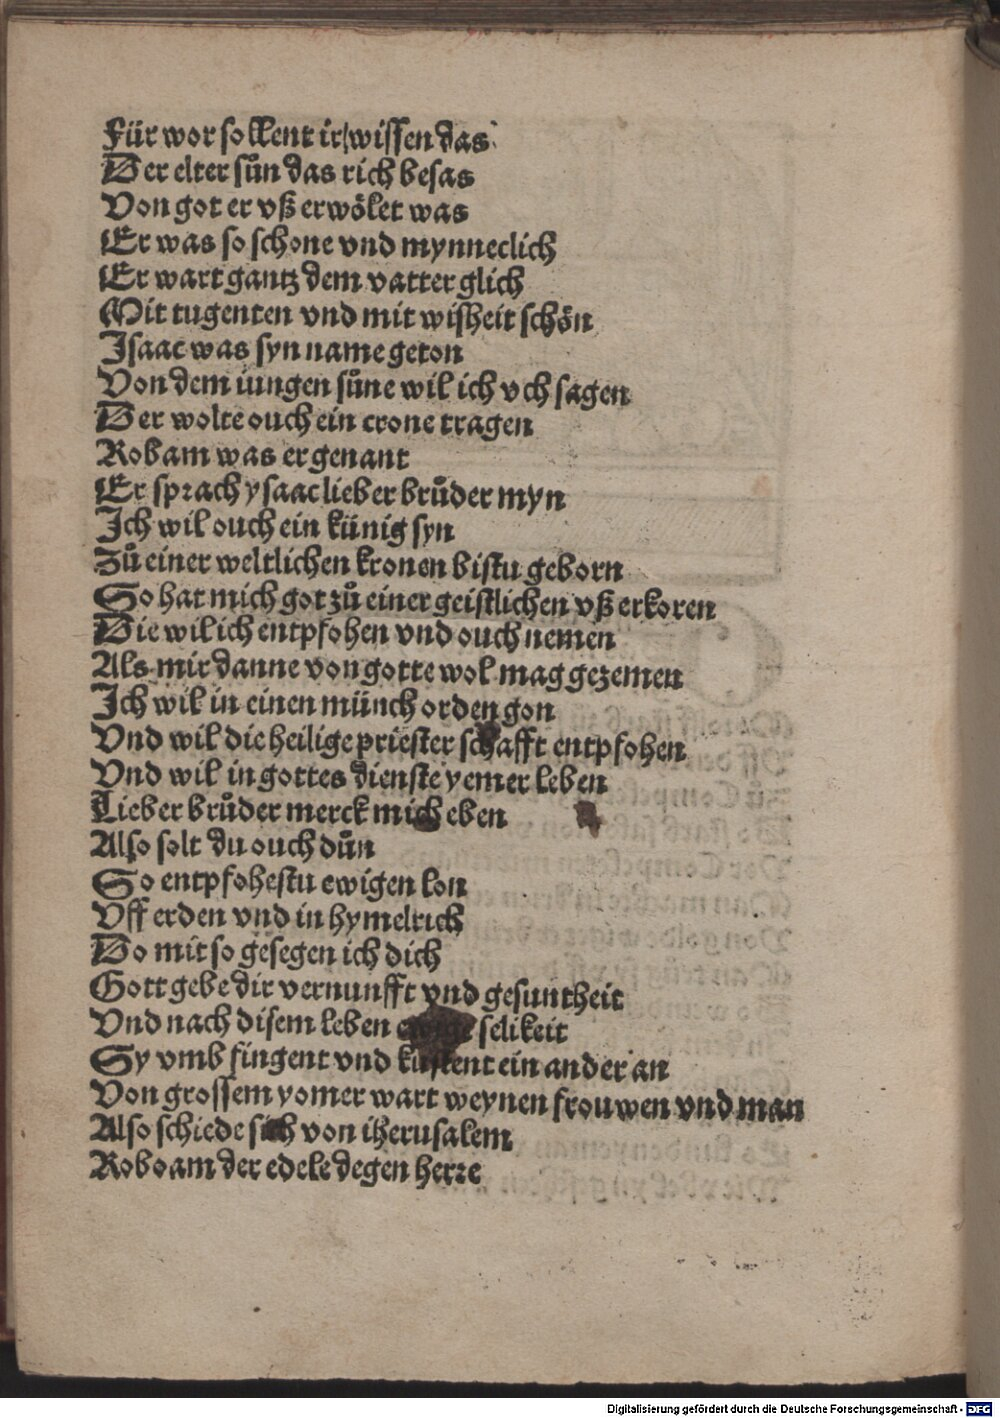 Für wor sollent ir wissen das
Der elter sůn das rich besas
Von got er vß erwölet was
Er was so schone vnd mynneclich
Er wart gantz dem vatter glich
Mit tugenten vnd mit wisheit schön
Isaac was syn name geton
Von dem iungen sůne wil ich vch sagen
Der wolte ouch ein crone tragen
Robam was er genant
Er sprach ysaac lieber brůder myn
Ich wil ouch ein künig syn
Zů einer weltlichen kronen bistu geborn
So hat mich got zů einer geistlichen vß erkoren
Die wil ich entpfohen vnd ouch nemen
Als mir danne von gotte wol mag gezemen
Ich wil in einen münch orden gon
Vnd wil die heilige priester schafft entpfohen
Vnd wil in gottes dienste yemer leben
Lieber brůder merck mich eben
Also solt du ouch důn
So entpfohestu ewigen lon
Vff erden vnd in hymelrich
Do mit so gesegen ich dich
Gott gebe dir vernunfft vnd gesuntheit
Vnd nach disem leben ewige selikeit
Sy vmb fingent vnd kustent ein ander an
Von grossem yomer wart weynen frouwen vnd man
Also schiede sich von iherusalem
Roboam der edele degen herre
Digitalisierung gefördert durch die Deutsche Forschungsgemeinschaft - DFG